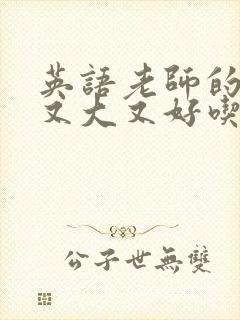 英語老師的
又大又好喫
公子世無雙